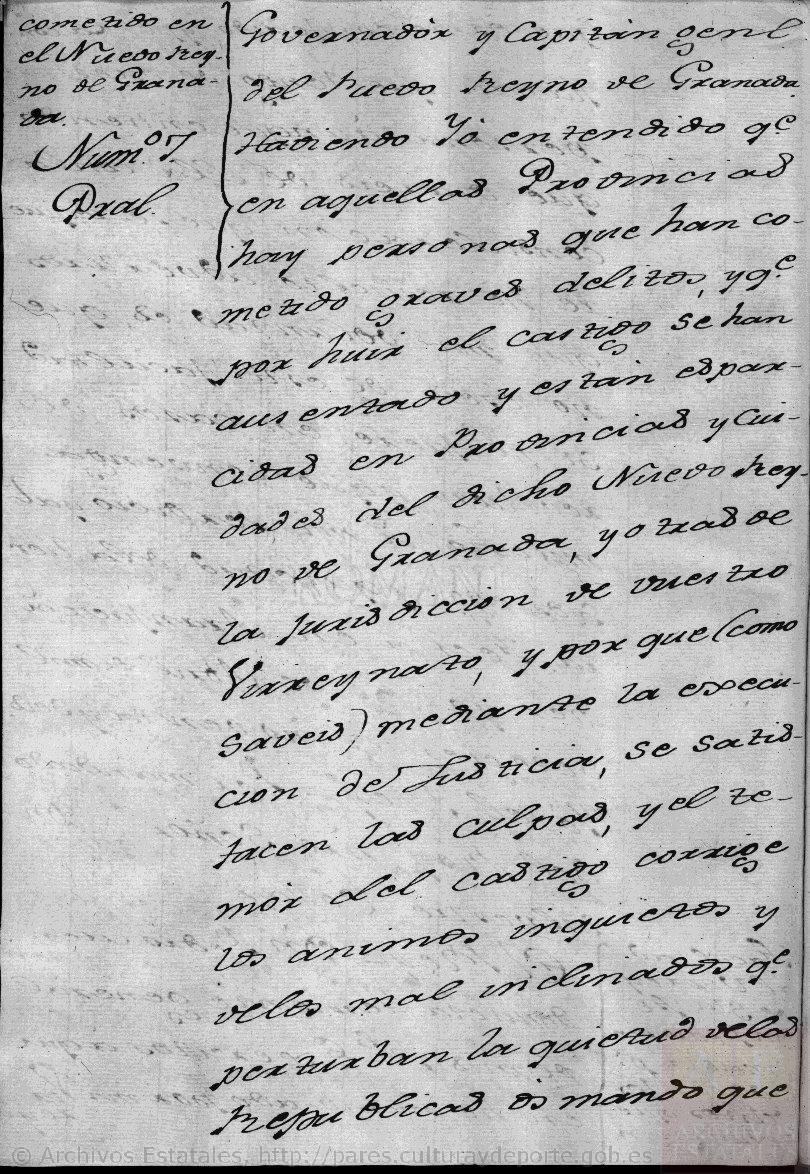 cometido en
el Nuevo Rey-
no de Grana-
da.
Num.º 7.
Pral.
Governadòr y Capitàn gen.l
del Nuevo Reyno de Granada
Haviendo Yò entendido q.e
en aquellas Provincias
hay personas que han co-
metido graves delitos, y q.e
por huir el castigo se han
ausentado y estàn espar-
cidas en Provincias y Ciu-
dades del dicho Nuevo Rey-
no de Granada, y otras de
la Jurisdiccion de vuestro
Virreynato, y por que (como
saveis) mediante la execu-
cion de Justicia, se satis-
facen las culpas, y el te-
mòr del castigo corrige
los animos inquietos y
de los mal inclinados q.e
perturban la quietud de las
Republicas os mando que
© Archivos Estatales, http://pares.culturaydeporte.gob.es
ARCHIVOS
ESTATALES